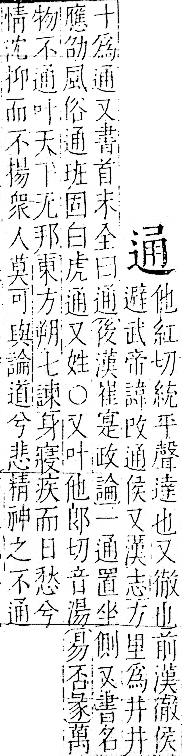 通
他紅切統平聲達也又徹也前漢徹侯
避武帝諱改通侯又漢志方里爲井井
十爲通又書首末全曰通後漢崔寔政論一通置坐側又書名
應劭風俗通班固白虎通又姓○又叶他郎切音湯易否彖萬
物不通叶天下无邦東方朔七諫身寢疾而日愁兮
情沈抑而不揚衆人莫可與論道兮悲精神之不通